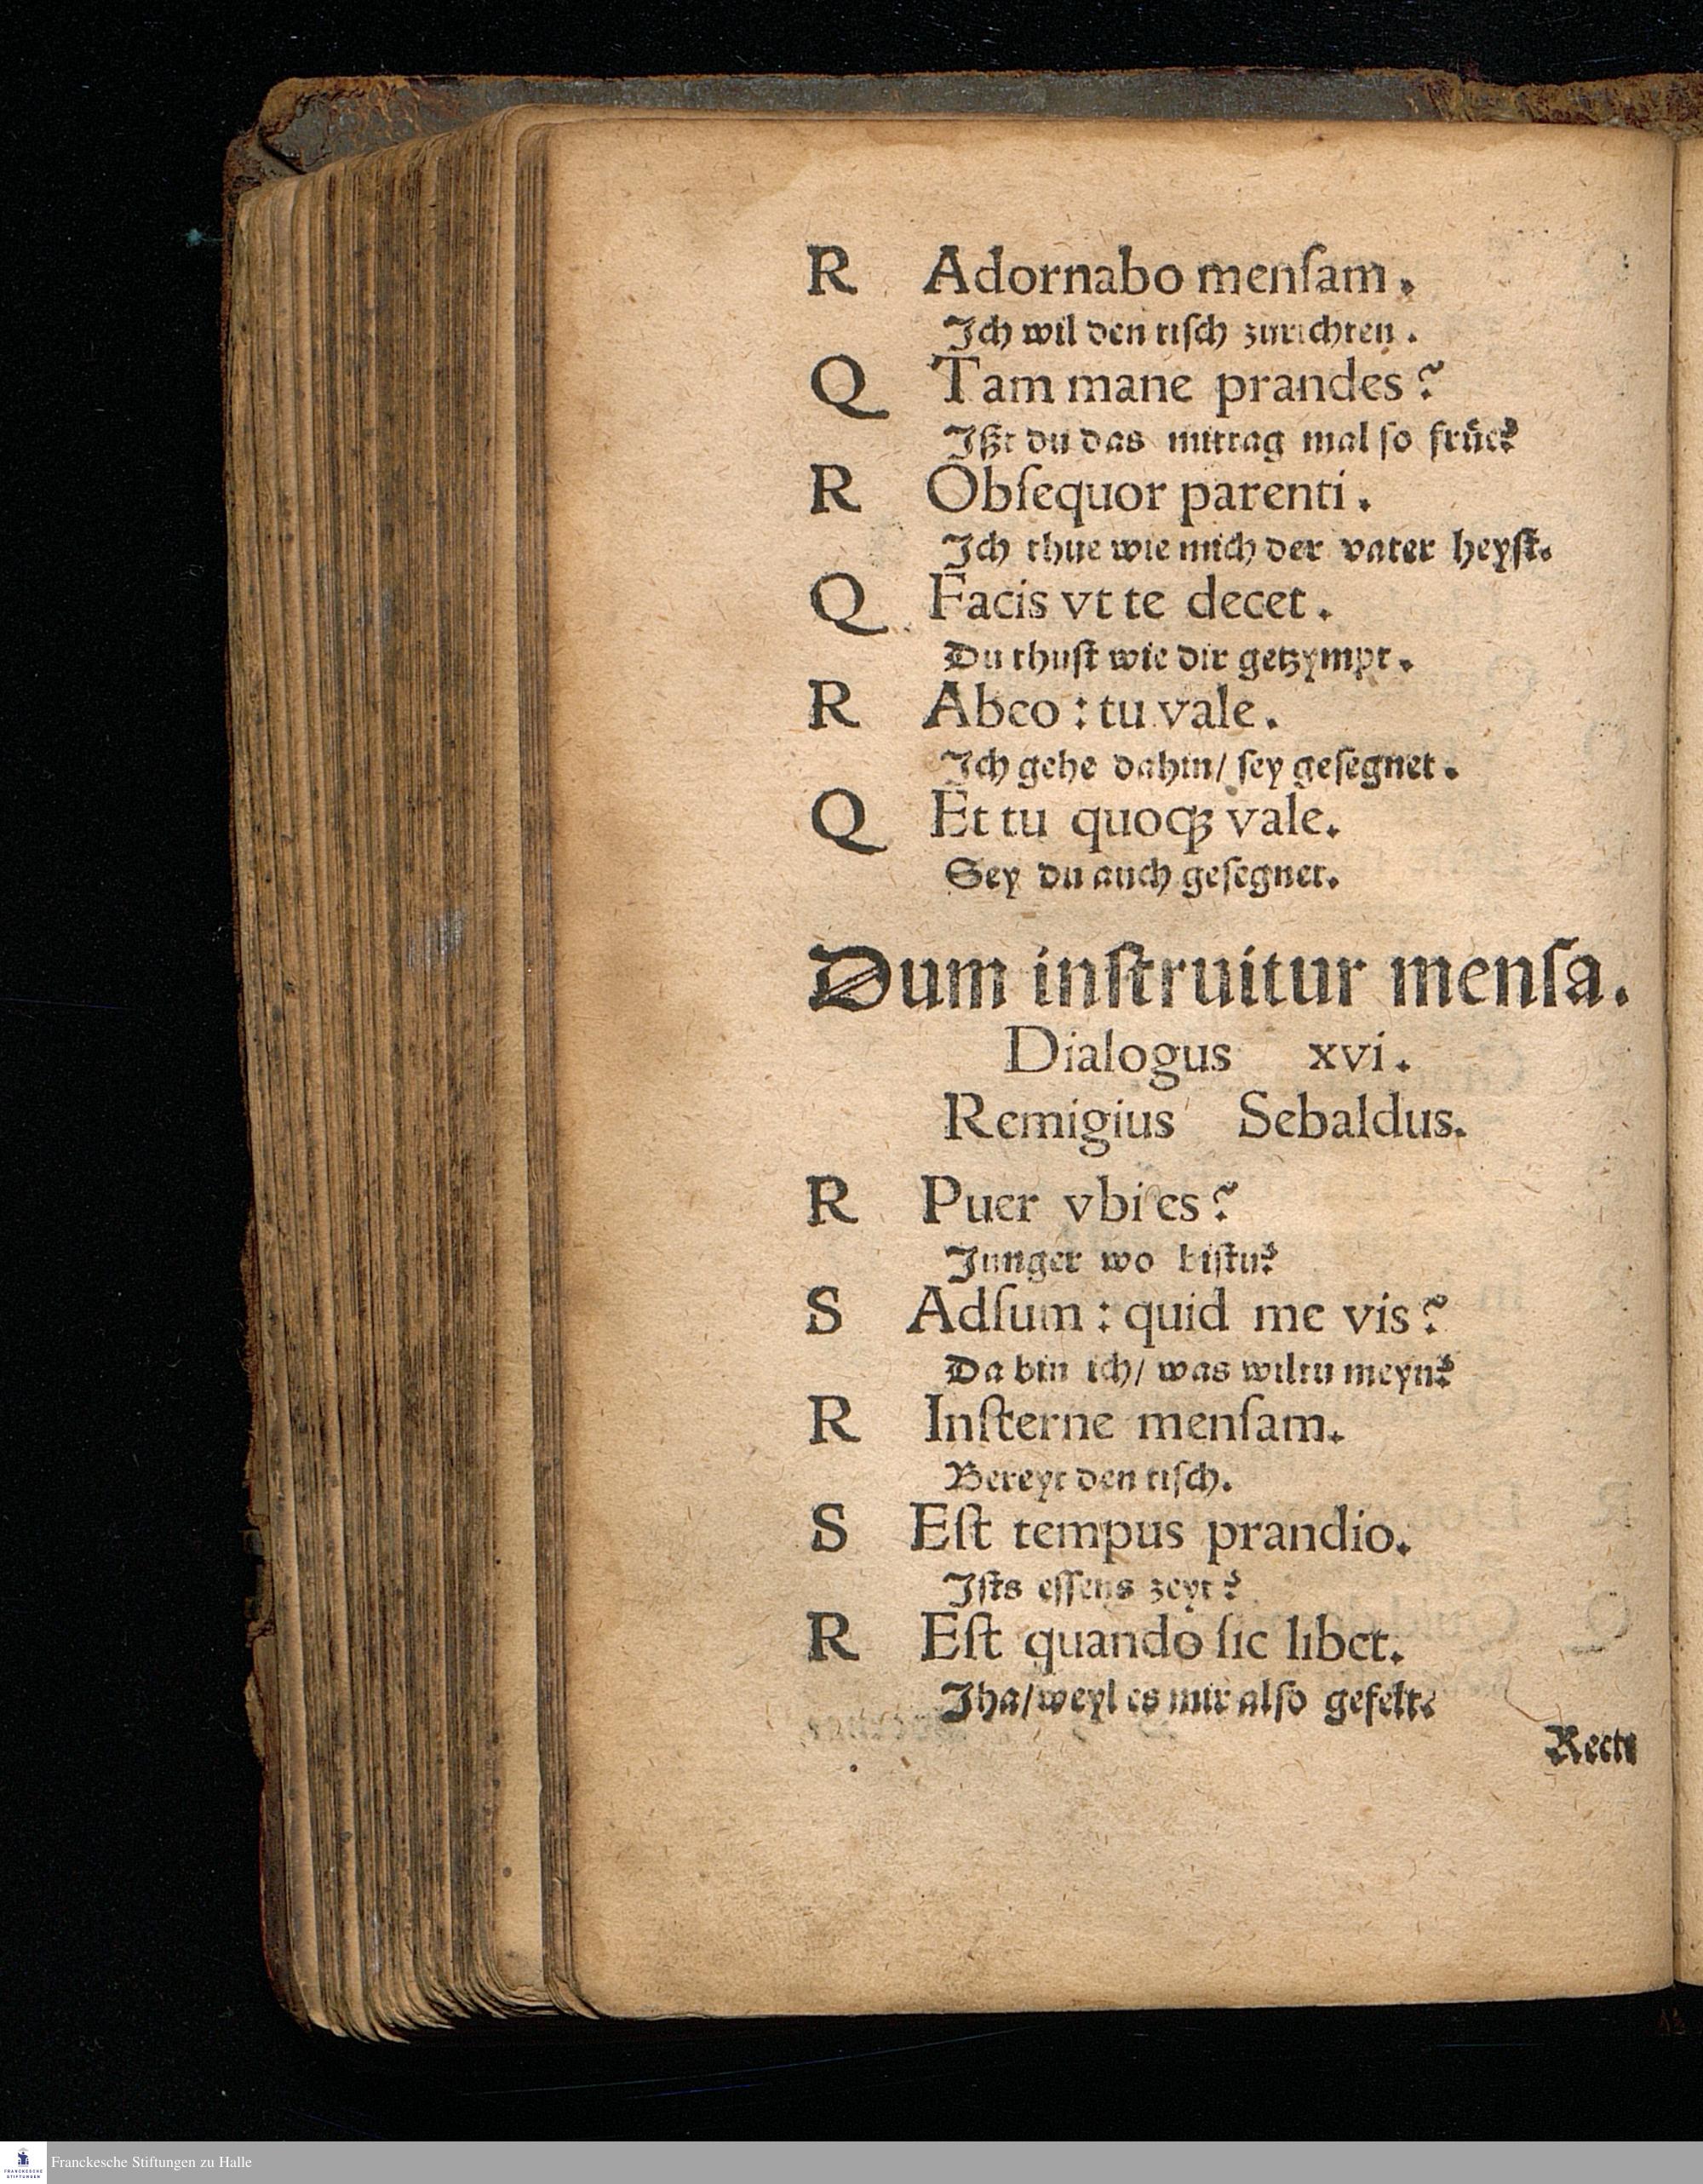 R Adornabo menſam.
Ich wil den tiſch zurichten.
Q Tam mane prandes?
Ißt du das mittag mal ſo früe?
R Obſequor parenti.
Ich thue wie mich der vater heyſt.
Q Facis vt te decet.
Du thuſt wie dir getzympt.
R Abeo: tu vale.
Ich gehe dahin/ ſey geſegnet.
Q Et tu quoqꝫ vale.
Sey du auch geſegnet.
Dum inſtruitur menſa.
Dialogus xvi.
Remigius Sebaldus.
R Puer vbi es?
Junger wo biſtu?
S Adſum: quid me vis?
Da bin ich/ was wiltu meyn?
R Inſterne menſam.
Bereyt den tiſch.
S Eſt tempus prandio.
Iſts eſſens zeyt?
R Eſt quando ſic libet.
Jha/weyl es mir alſo gefelt.
Recte
Franckesche Stiftungen zu Halle